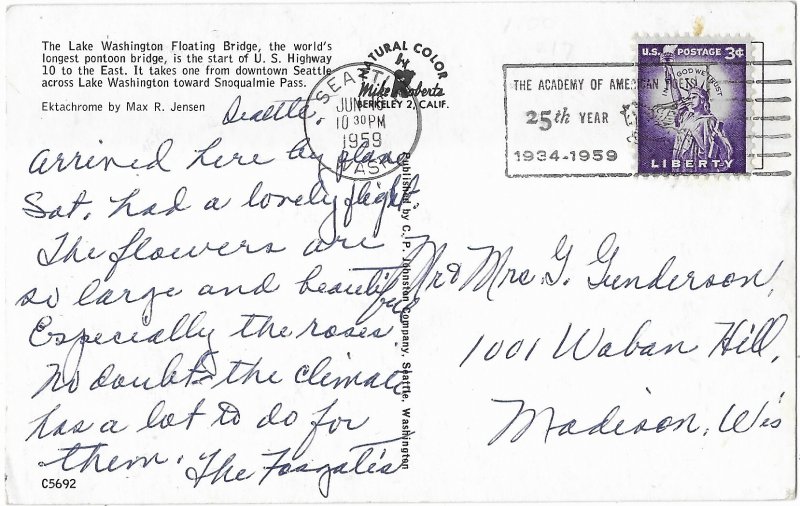 The Lake Washington Floating Bridge, the world's
longest pontoon bridge, is the start of U. S. Highway
10 to the East. It takes one from downtown Seattle
across Lake Washington toward Snoqualmie Pass.
Ektachrome by Max R. Jensen
NATURAL COLOR
by
Mike Roberts
BERKELEY 2, CALIF.
SEATTLE
JUN
10 30 PM
1959
WASH
THE ACADEMY OF AMERICAN POETS
25th YEAR
1934-1959
U.S. POSTAGE 3¢
IN GOD WE TRUST
LIBERTY
Seattle,
Arrived here by plane
Sat. had a lovely flight.
The flowers are
so large and beautiful
Especially the roses.
No doubt the climate
has a lot to do for
them. The
Published by C. P. Johnston Company, Seattle, Washington
Mr & Mrs. G. Gunderson,
1001 Waban Hill,
Madison, Wis
C5692